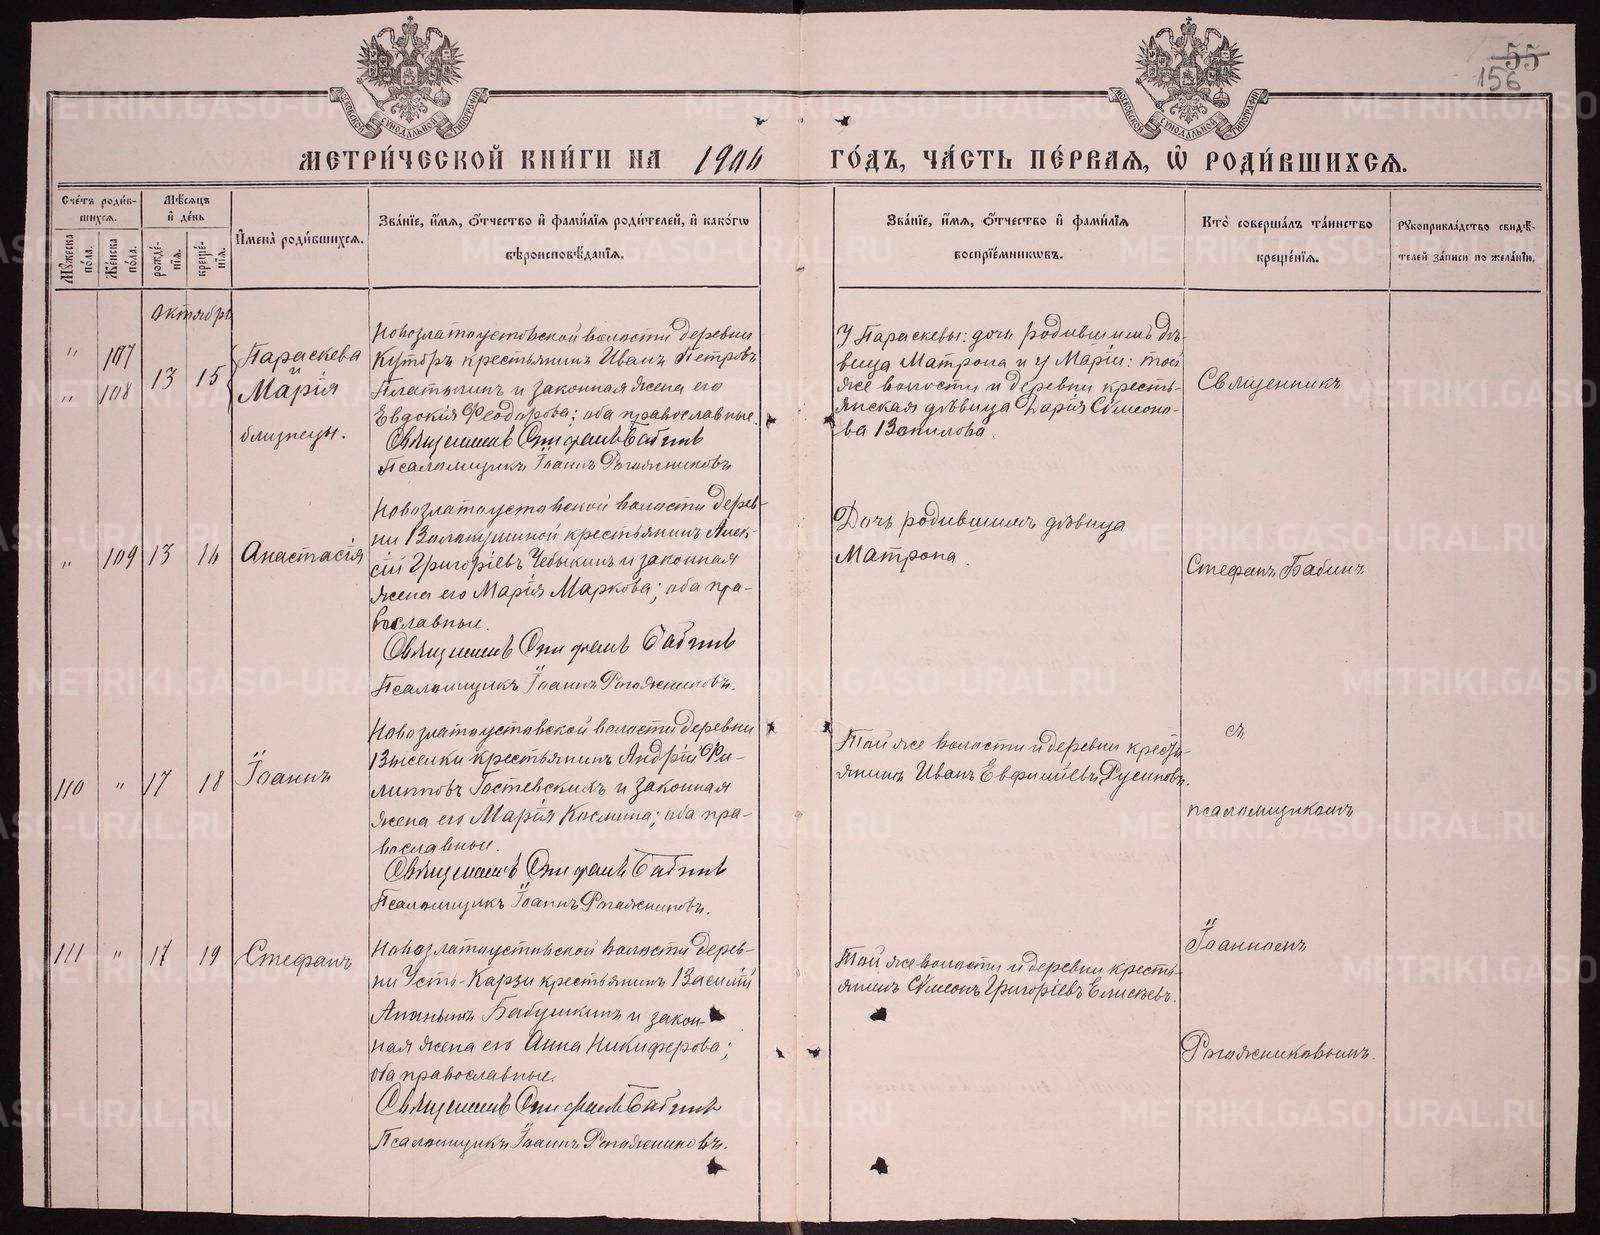 55
156
МОСКОВСКОЙ СѴНОДАЛЬНОЙ ТИПОГРАФІИ
МОСКОВСКОЙ СѴНОДАЛЬНОЙ ТИПОГРАФІИ
МЕТРИ́ЧЕСКОЙ КНИ́ГИ НА 1906 ГО́ДЪ, ЧА́СТЬ ПЕ́РВАЯ, Ѡ҆ РОДИ́ВШИХСЯ.
Сче́тъ роди́в-
шихся.
Мꙋ́жеска по́ла.
Же́нска по́ла.
Мѣ́сяцъ
и҆ де́нь
рожде́-
нїя.
креще́-
нїя.
И҆мена̀ роди́вшихся.
Зва́нїе, и҆́мя, ѻ҆́тчество и҆ фами́лїя роди́телей, и҆ како́гѡ
вѣроисповѣ́данїя.
Зва́нїе, и҆́мя, ѻ҆́тчество и҆ фами́лїя
воспрїе́мникѡвъ.
Кто̀ соверша́лъ та́инство
креще́нїя.
Рꙋкоприкла́дство свидѣ́-
телей за́писи по жела́нїю.
Октябрь
" 107
" 108
13 15
Параскева
и
Марія
близнецы.
Новозлатоустовской волости деревни
крестьянинъ Иванъ Петровъ
Платыгинъ и законная жена его
Евдокія Ѳеодорова; оба православные.
Священникъ Стефанъ Бабинъ
Псаломщикъ Іоаннъ Рогожниковъ
У Параскевы: дочь родившимъ дѣ-
вица Матрона и у Маріи: той
же волости и деревни кресть-
янская дѣвица Дарія Сѵмеоно-
ва Вопилова.
Священникъ
" 109 13 16 Анастасія
Новозлатоустовской волости дерев-
ни крестьянинъ Алек-
сій Григоріевъ Чебыкинъ и законная
жена его Марія Маркова; оба пра-
вославные.
Священникъ Стефанъ Бабинъ
Псаломщикъ Іоаннъ Рогожниковъ.
Дочь родившимъ дѣвица
Матрона.
Стефанъ Бабинъ
110 " 17 18 Іоаннъ
Новозлатоустовской волости деревни
Выселки крестьянинъ Андрій Фи-
липповъ Гостевскихъ и законная
жена его Марія Космина; оба пра-
вославные.
Священникъ Стефанъ Бабинъ
Псаломщикъ Іоаннъ Рогожниковъ.
Той же волости и деревни кресть-
янинъ Иванъ Евфиміевъ Русиновъ.
съ
псаломщикомъ
111 " 17 19 Стефанъ
Новозлатоустовской волости дерев-
ни Усть-Карзи крестьянинъ Василій
Ананьинъ Бабушкинъ и закон-
ная жена его Анна Никифорова;
оба православные.
Священникъ Стефанъ Бабинъ
Псаломщикъ Іоаннъ Рогожниковъ.
Той же волости и деревни кресть-
янинъ Сѵмеонъ Григоріевъ Елисѣевъ.
Іоанномъ
Рогожниковымъ.
METRIKI.GASO-URAL.RU